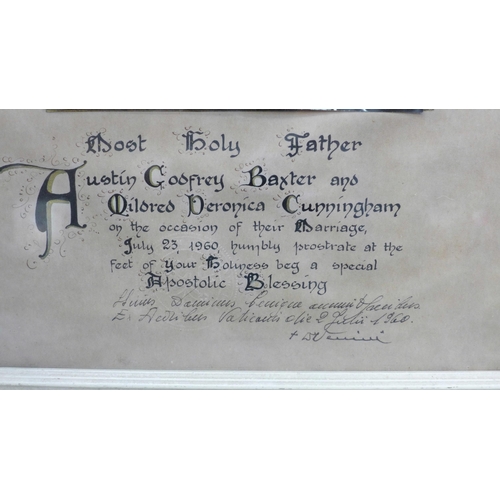 Most Holy Father
Austin Godfrey Baxter and
Mildred Veronica Cunningham
on the occasion of their Marriage,
July 23, 1960, humbly prostrate at the
feet of Your Holiness beg a special
Apostolic Blessing
Dominus
Vaticani die 2 Julii 1960.